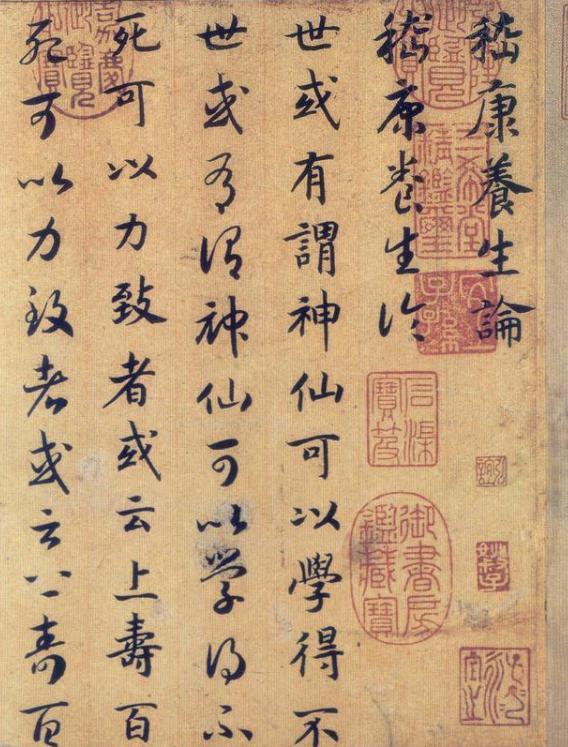 嵇康養生論
嵇康養生論
世或有謂神仙可以學得不
世或有謂神仙可以學得不
死可以力致者或云上壽百
死可以力致者或云上壽百
三希堂精鑑璽
宜子孫
石渠寶笈
御書房鑑藏寶